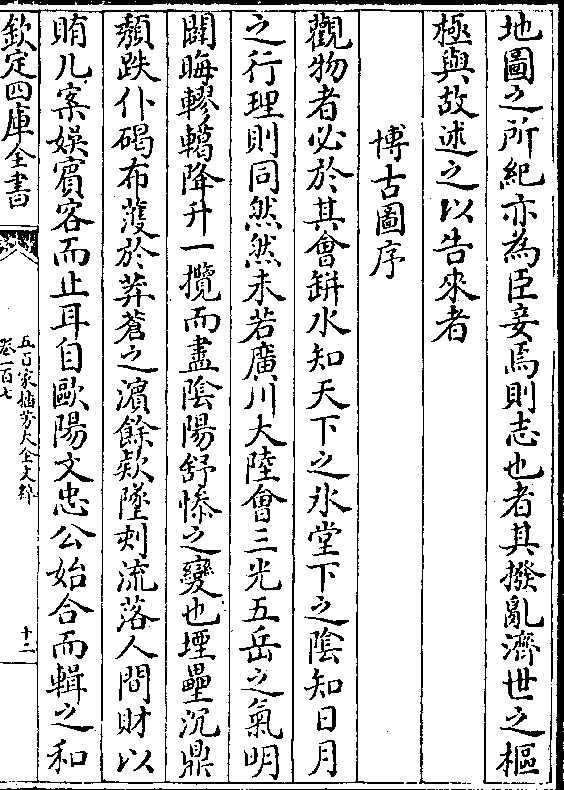 地圖之所紀亦為臣妾焉則志也者其撥亂濟世之樞
極與故述之以告來者
博古圖序
觀物者必於其會缾水知天下之氷堂下之陰知日月
之行理則同然然未若廣川大陸會三光五岳之氣明
闢晦轇轕降升一攬而盡陰陽舒慘之變也堙壘沉鼎
頽跌仆碣布濩於莽蒼之濵餘欵墜刻流落人間財以
賄几案娯賔客而止耳自歐陽文忠公始合而輯之和
欽定四庫全書
五百家播芳大全文粹
卷一百七
十二